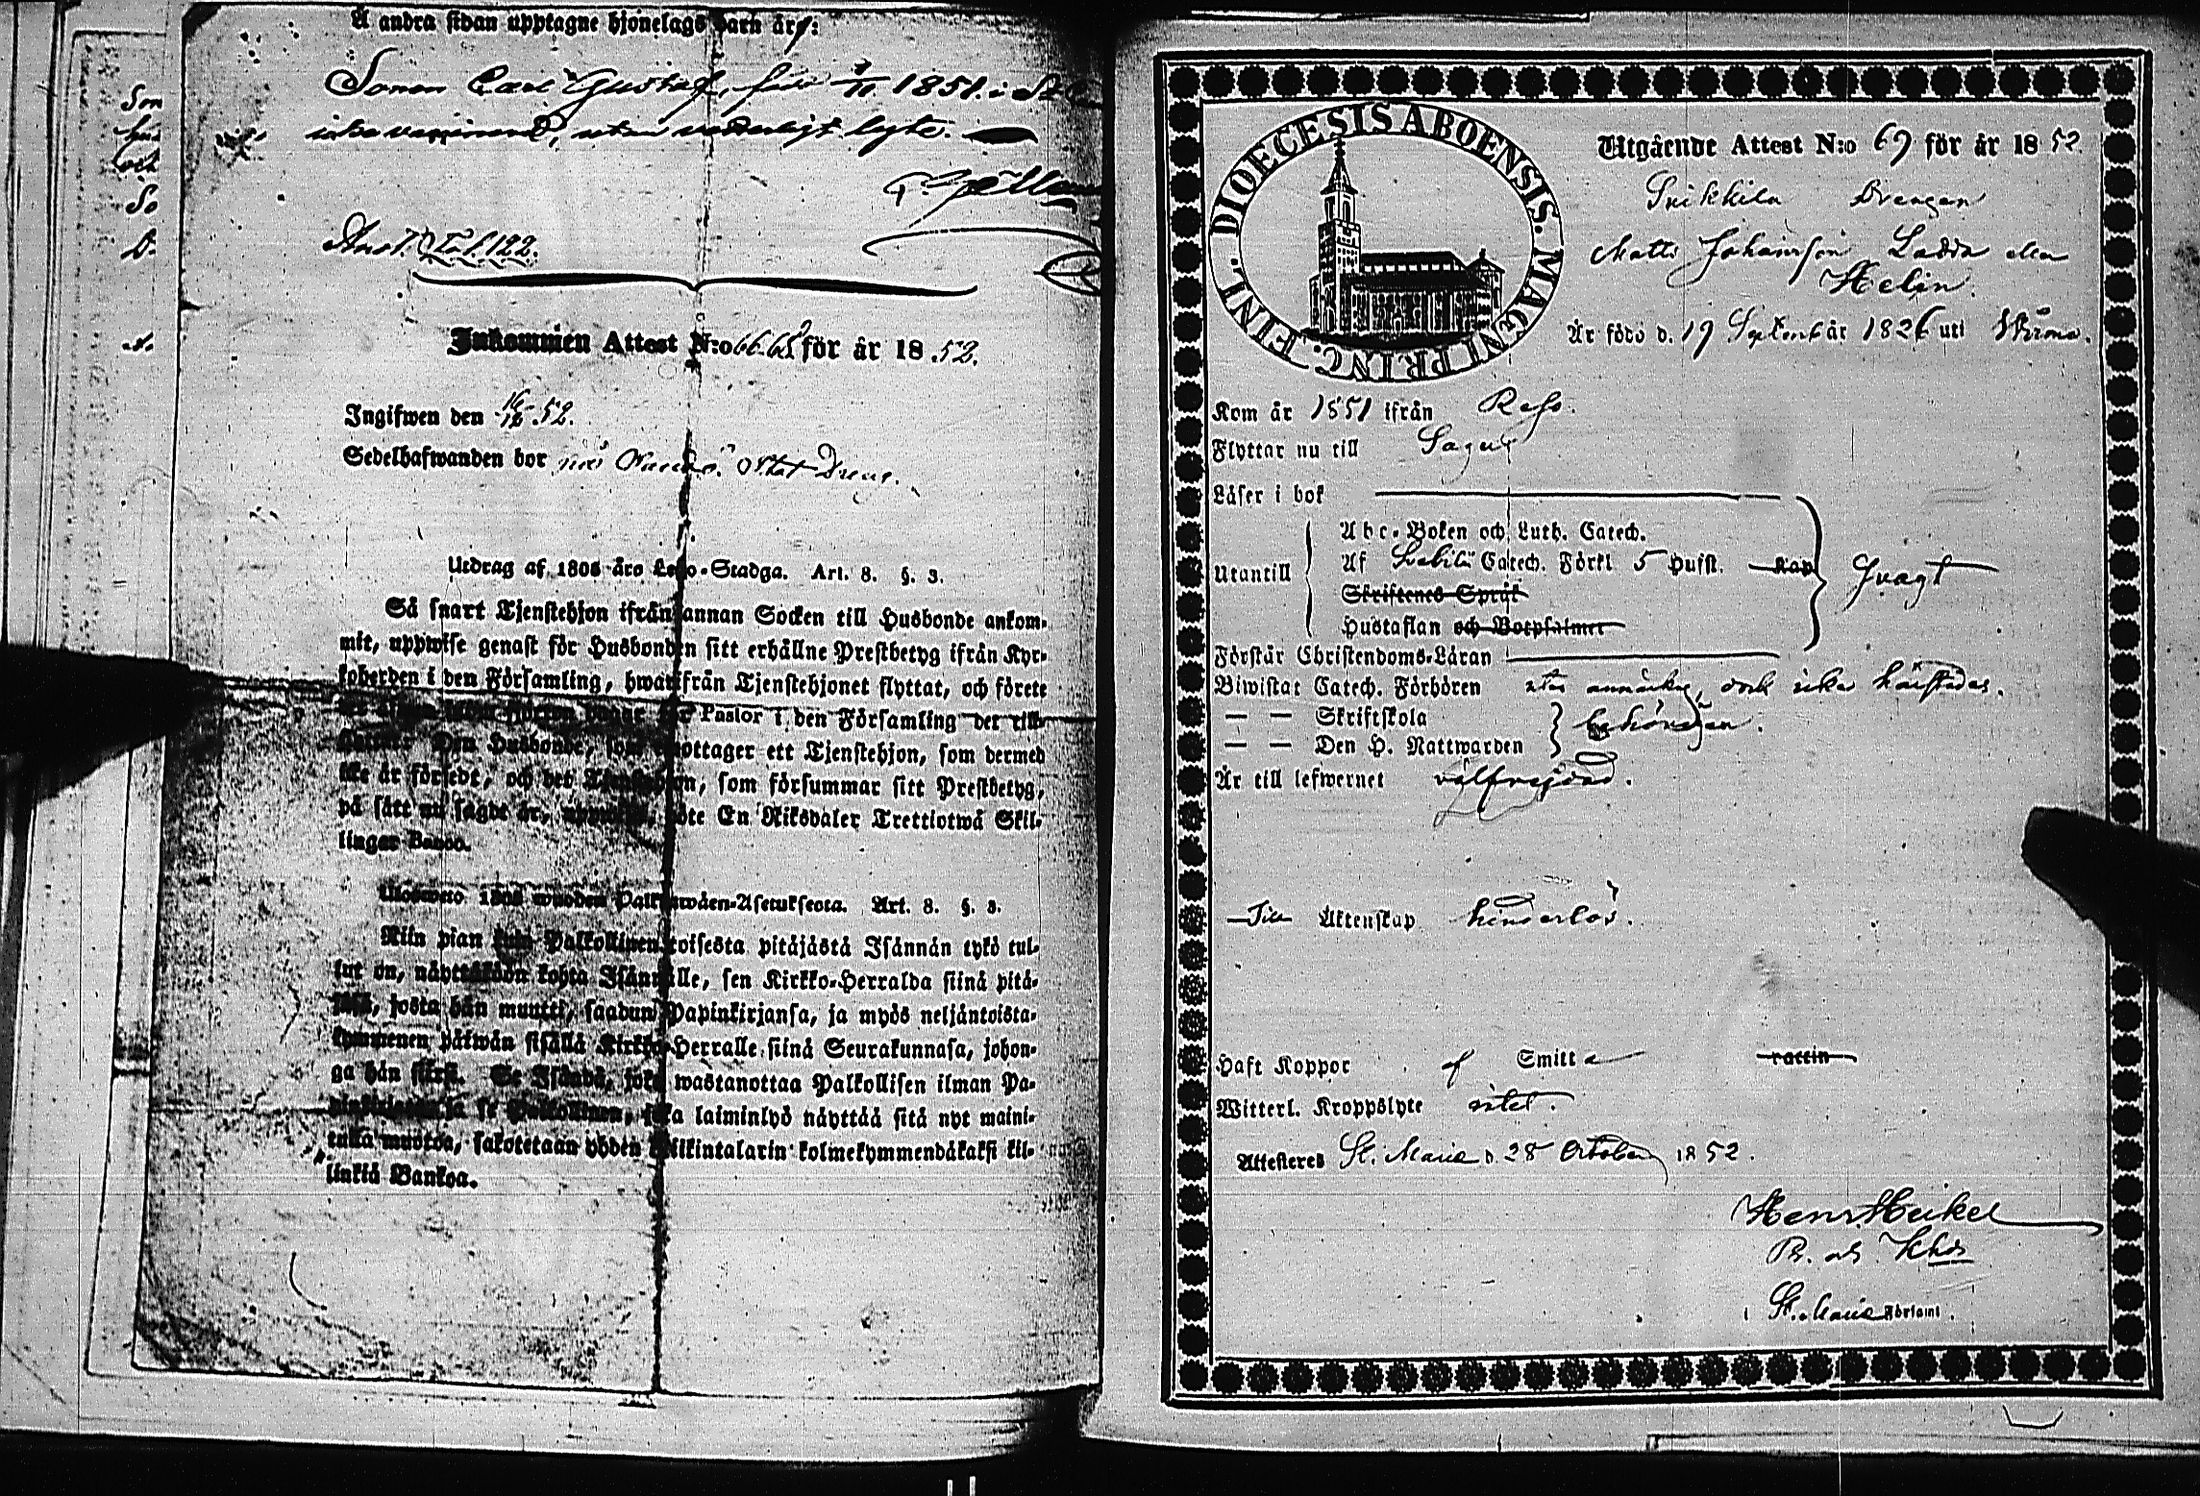 Å andra sidan upptagne hjonelags barn är:
Sonen Carl Gustaf, född 1851. i St
icke vaccinerad, utan vederligt lyte.
Anot. Tal. 122.
Inkommen Attest N:o 66.68 för år 1852.
Ingifwen den 16/12 52.
Sedelhafwanden bor
Utdrag af 1805 års Lego-Stadga. Art. 8. §. 3.
Så snart Tjenstehjon ifrån annan Socken till Husbonde ankom-
mit, uppwise genast för Husbonden sitt erhållne Prestbetyg ifrån Kyr-
koherden i den Församling, hwarifrån Tjenstehjonet flyttat, och förete
Pastor i den Församling det till-
Den Husbonde, som mottager ett Tjenstehjon, som dermed
icke är försedt, och det Tjenstehjon, som försummar sitt Prestbetyg,
på sätt nu sagdt är, uppwisa, böte En Riksdaler Trettiotwå Skil-
lingar Banco.
Ulosweto 1805 wuoden Palkkawäen-Asetuksesta. Art. 8. §. 3.
Niin pian kuin Palkollinen toisesta pitäjästä Isännän tykö tul-
lut on, näyttäköön kohta Isännälle, sen Kirkko-Herralda siinä pitä-
jäsä, josta hän muutti, saadun Papinkirjansa, ja myös neljäntoista-
kymmenen päiwän sisällä Kirkko-Herralle siinä Seurakunnasa, johon-
ga hän siirsi. Se Isändä, joka wastanottaa Palkollisen ilman Pa-
pinkirjata ja se Palkollinen, joka laiminlyö näyttää sitä nyt maini-
tulla muotoa, sakotetaan yhden Riikintalarin kolmekymmendäkaksi kil-
linkiä Bankoa.
DIOECESIS ABOENSIS. MAGNI PRINC. FINL.
Utgående Attest N:o 69 för år 1852.
Drengen
Matts Johansson Ladda eller
Helin.
Är född d. 19 Septemb år 1826 uti Wirmo.
Kom år 1851 ifrån Reso.
Flyttar nu till Sagu
Läser i bok
Utantill
Abc-Boken och Luth. Catech.
Af Svebilii Catech. Förkl 5 Hufst. Kap
Skriftenes Språk
Hustaflan och Botpsalmer
svagt
Förstår Christendoms-Läran
Biwistat Catech. Förhören utan anmärkng, dock icke
— — Skriftskola
— — Den H. Nattwarden
behörigen.
Är till lefwernet välfrejdad.
Till Äktenskap hinderlös.
Haft Koppor af Smitta vaccin
Witterl. Kroppslyte intet.
Attesteras St. Marie d. 28 October 1852.
Henr Heikel
Pr. och Khde
i St. Marie Församl.